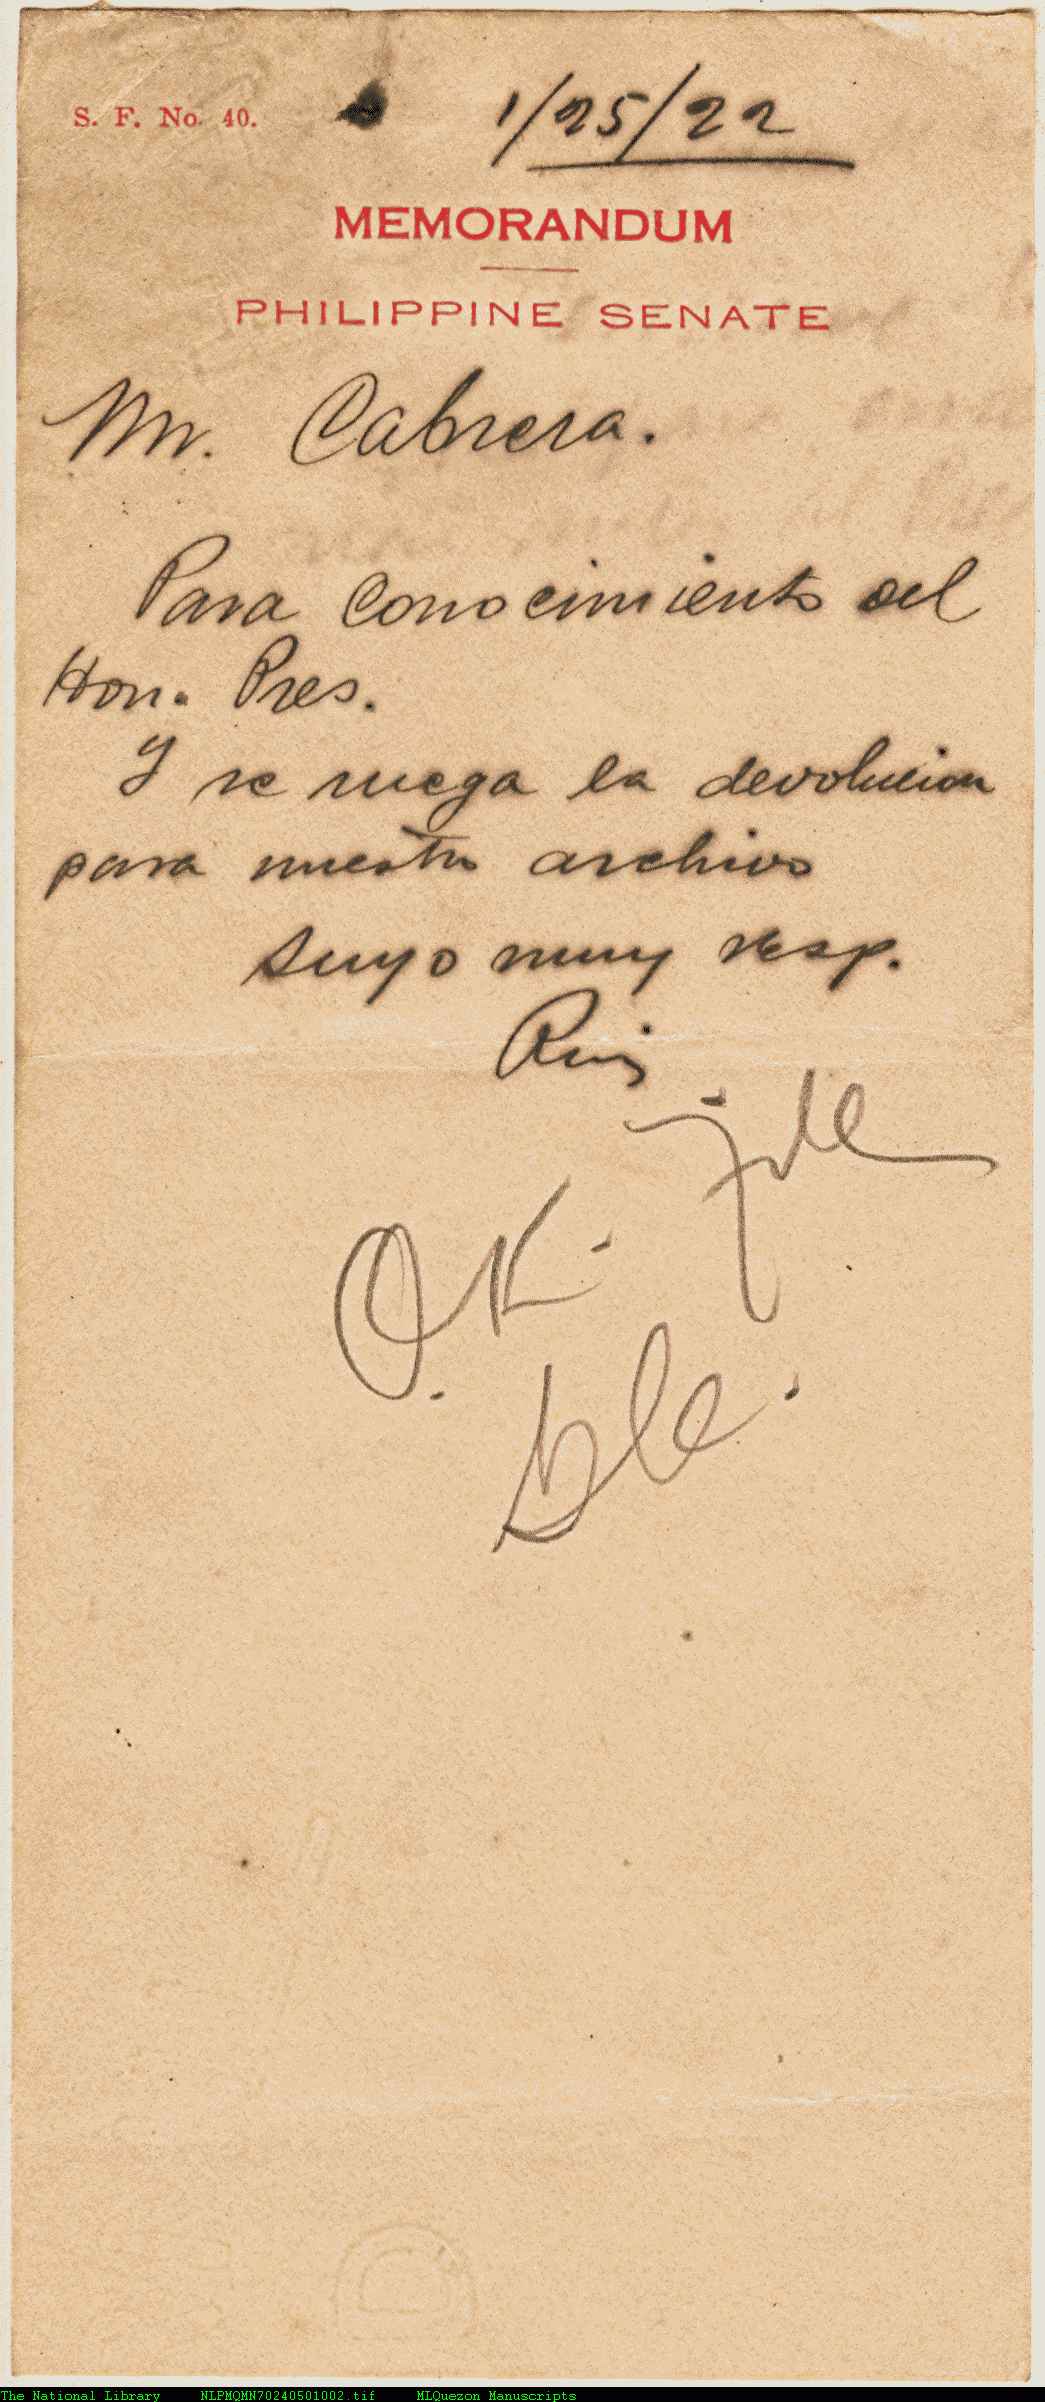 S. F. No. 40.
1/25/22
MEMORANDUM
PHILIPPINE SENATE
Mr. Cabrera.
Para conocimiento del
Hon. Pres.
Y se ruega la devolucion
para nuestro archivo
Suyo muy resp.
Ruiz
file
O.K.
The National Library NLPMQMN70240501002.tif MLQuezon Manuscripts